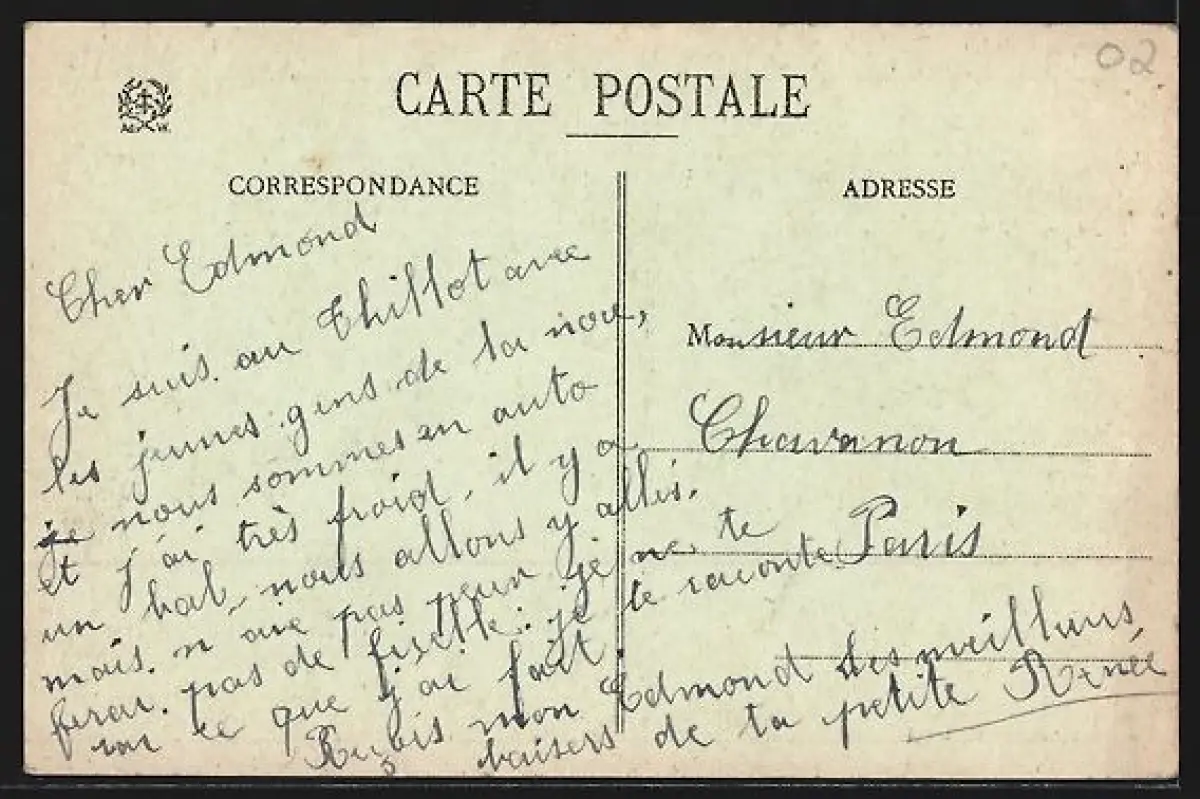 02
CARTE POSTALE
CORRESPONDANCE
Cher Edmond
Je suis au Thillot avec
les jeunes gens de la noce,
je nous sommes en auto
et j'ai très froid, il y a
un bal, nous allons y allés.
mais n aie pas peur je ne te
ferai pas de ficelle: je te raconte
rai ce que j'ai fait.
Reçois mon Edmond des meilleurs
baisers de ta petite Renée
ADRESSE
Monsieur Edmond
Chavanon
Paris